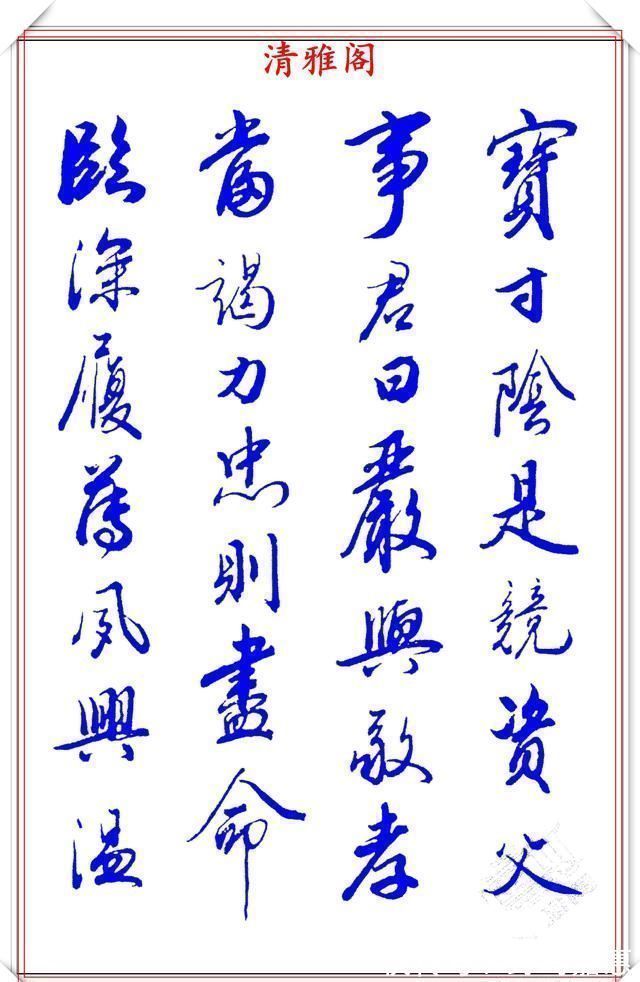 清雅阁
寶寸陰是競資父
事君曰嚴與敬孝
當竭力忠則盡命
臨深履薄夙興溫